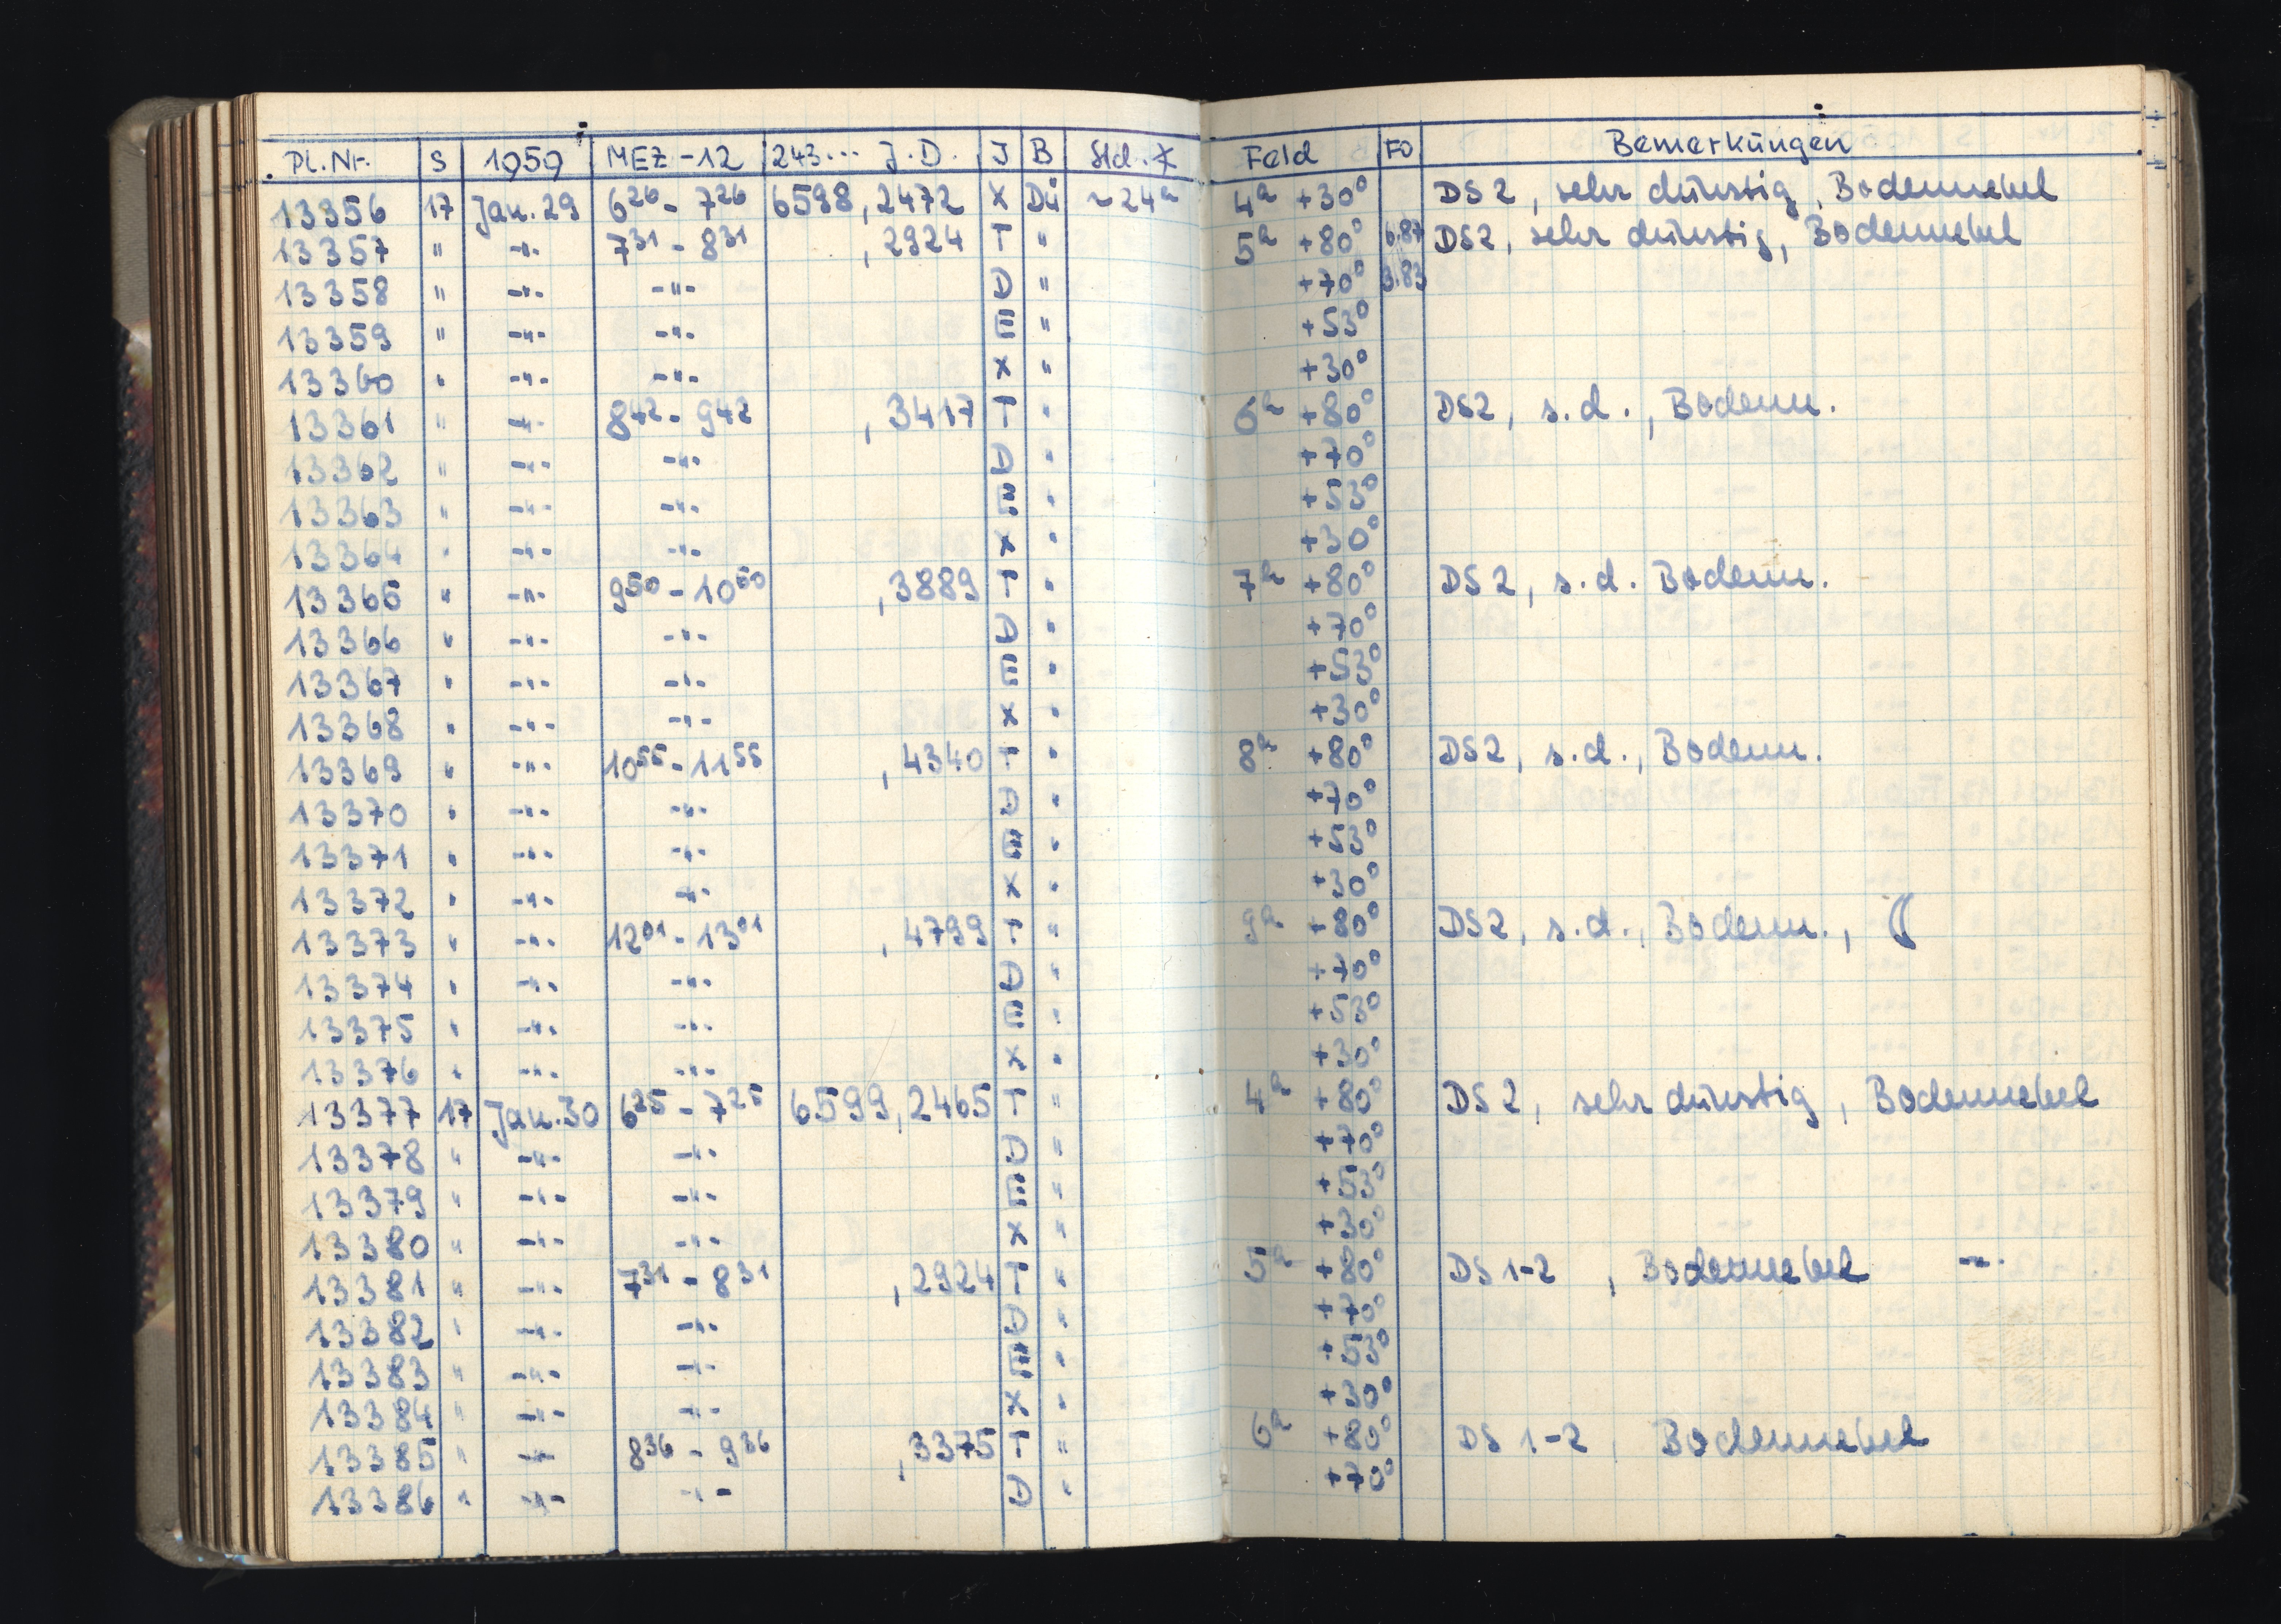 Pl. Nr. S 1959 MEZ -12 243... J.D. J B Std.* Feld FO Bemerkungen
13356 17 Jan. 29 6 26 - 7 26 6598,2472 X Dü ~24h 4h +30° DS 2, sehr dunstig, Bodennebel
13357 " -"- 7 31 - 8 31 ,2924 T " 5h +80° 6.87 DS2, sehr dunstig, Bodennebel
13358 " -"- -"- D " +70° 3.83
13359 " -"- -"- E " +53°
13360 " -"- -"- X " +30°
13361 " -"- 8 42 - 9 42 ,3417 T " 6h +80° DS2, s.d., Bodenn.
13362 " -"- -"- D " +70°
13363 " -"- -"- E " +53°
13364 " -"- -"- X " +30°
13365 " -"- 9 50 - 10 50 ,3889 T " 7h +80° DS 2, s.d. Bodenn.
13366 " -"- -"- D " +70°
13367 " -"- -"- E " +53°
13368 " -"- -"- X " +30°
13369 " -"- 10 55 - 11 55 ,4340 T " 8h +80° DS2, s.d., Bodenn.
13370 " -"- -"- D " +70°
13371 " -"- -"- E " +53°
13372 " -"- -"- X " +30°
13373 " -"- 12 01 - 13 01 ,4799 T " 9h +80° DS2, s.d., Bodenn., ☾
13374 " -"- -"- D " +70°
13375 " -"- -"- E " +53°
13376 " -"- -"- X " +30°
13377 17 Jan. 30 6 25 - 7 25 6599,2465 T " 4h +80° DS 2, sehr dunstig, Bodennebel
13378 " -"- -"- D " +70°
13379 " -"- -"- E " +53°
13380 " -"- -"- X " +30°
13381 " -"- 7 31 - 8 31 ,2924 T " 5h +80° DS 1-2, Bodennebel -"-
13382 " -"- -"- D " +70°
13383 " -"- -"- E " +53°
13384 " -"- -"- X " +30°
13385 " -"- 8 36 - 9 36 ,3375 T " 6h +80° DS 1-2, Bodennebel
13386 " -"- -"- D " +70°